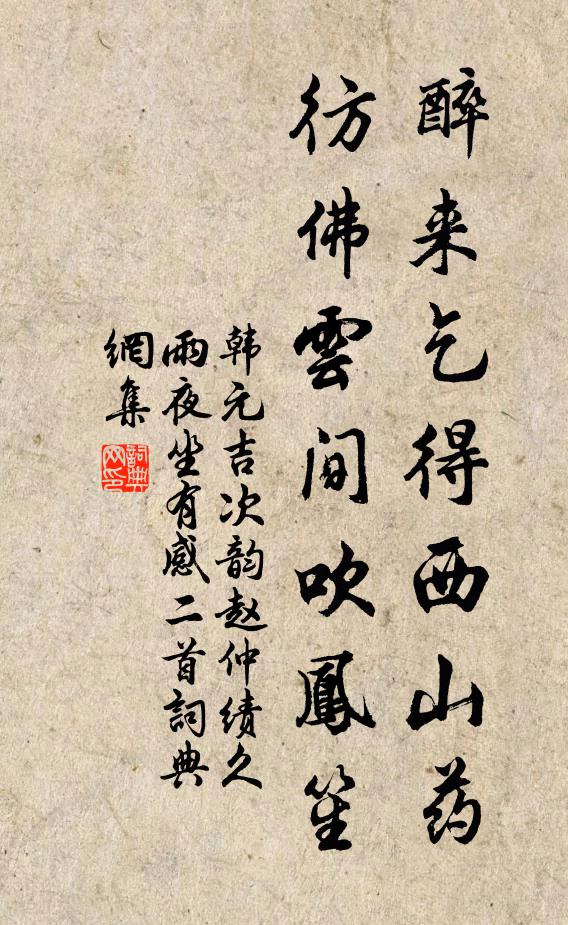 醉来乞得西山药
彷佛雲间吹鳳笙
韩元吉次韵赵仲缜久
雨夜坐有感二首詞典
網集
詞典
网印